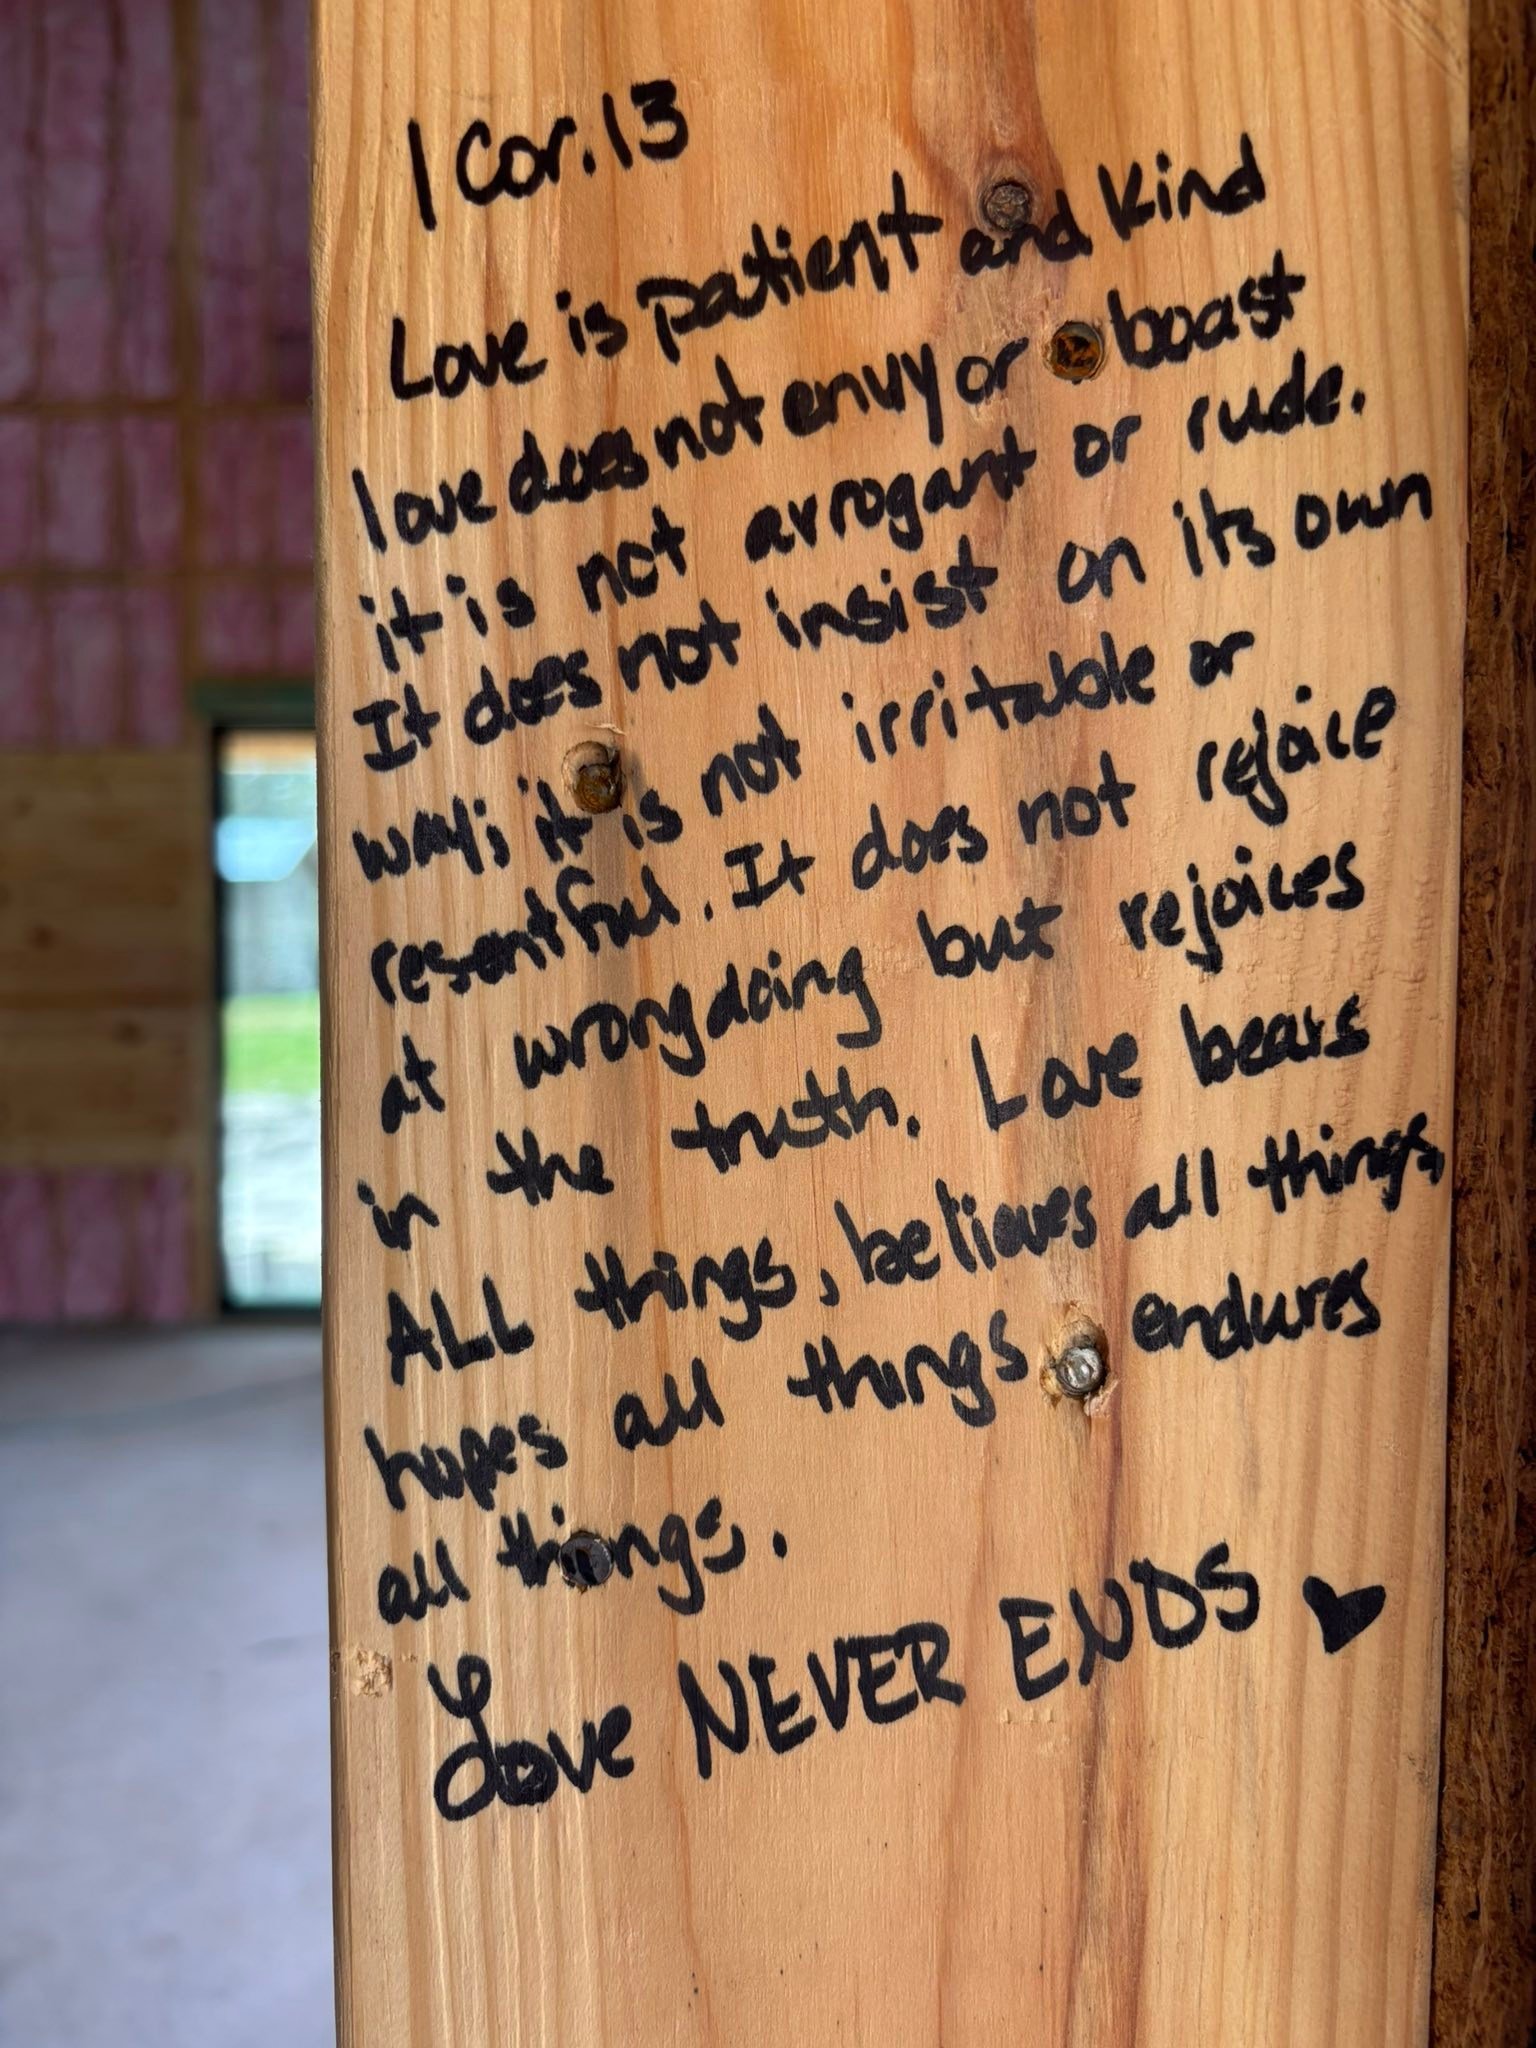 1 Cor. 13
Love is patient and kind
love does not envy or boast
it is not arrogant or rude.
It does not insist on its own
way; it is not irritable or
resentful. It does not rejoice
at wrongdoing but rejoices
in the truth. Love bears
ALL things, believes all things,
hopes all things endures
all things.
Love NEVER ENDS